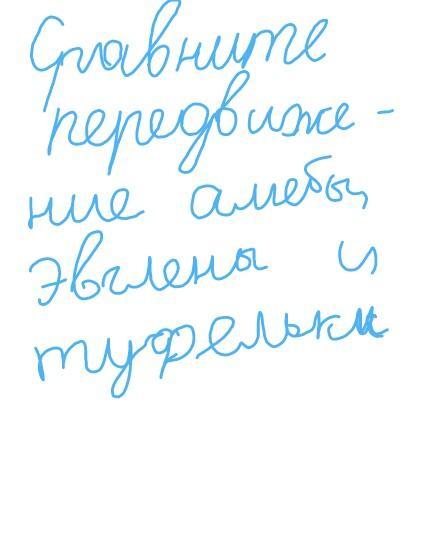 Сравните
передвиже-
ние амебы,
эвглены и
туфельки